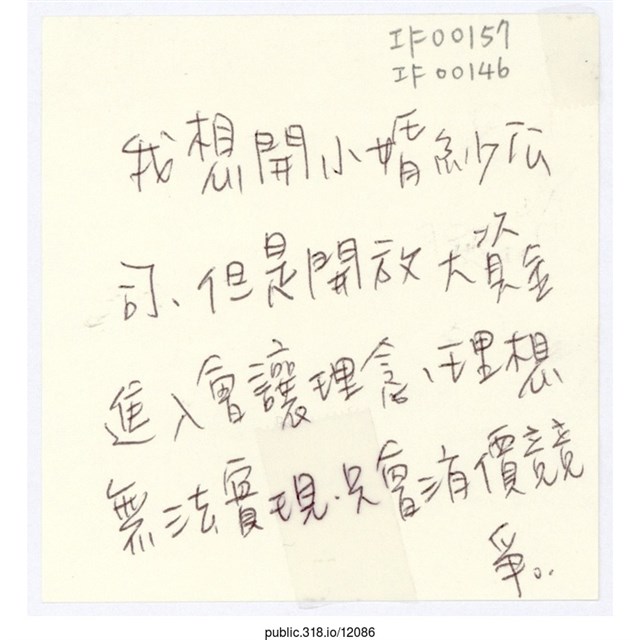 IF00157
IF00146
我想開小婚紗公
司、但是開放大資金
進入會讓理念、理想
無法實現.只會消價競
爭。
public.318.io/12086